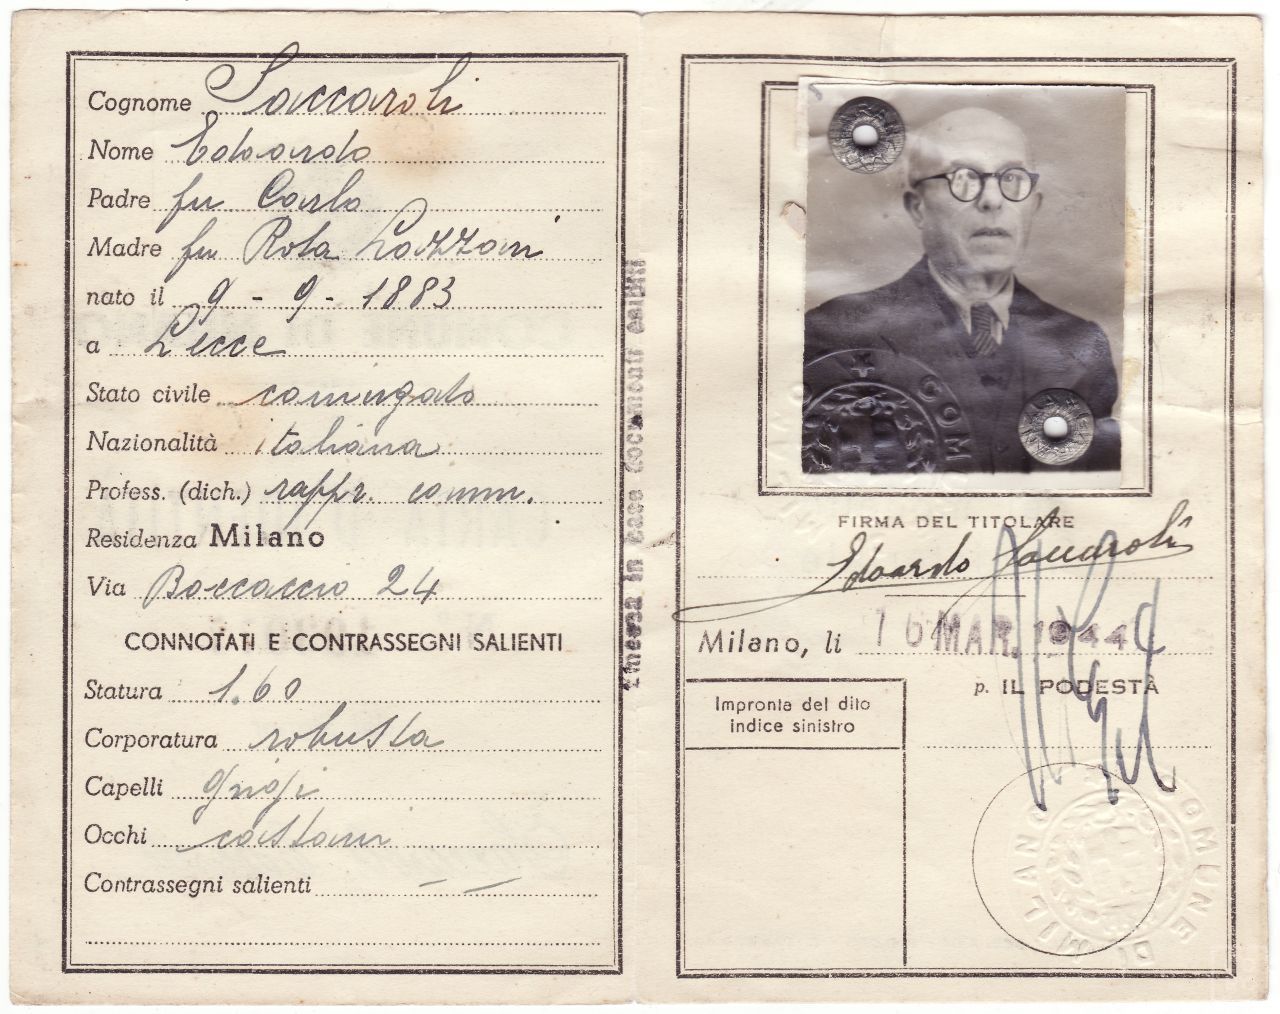 Cognome Saccaroli
Nome Edoardo
Padre fu Carlo
Madre fu Rota Lazzari
nato il 9 - 9 - 1883
a Lecce
Stato civile coniugato
Nazionalità italiana
Profess. (dich.) rappr. comm.
Residenza Milano
Via Boccaccio 24
CONNOTATI E CONTRASSEGNI SALIENTI
Statura 1.60
Corporatura robusta
Capelli grigi
Occhi castani
Contrassegni salienti — —
Emessa in base documenti esibiti
FIRMA DEL TITOLARE
Edoardo Saccaroli
Milano, li 16 MAR. 1944
p. IL PODESTÀ
Impronta del dito
indice sinistro
COMUNE DI MILANO